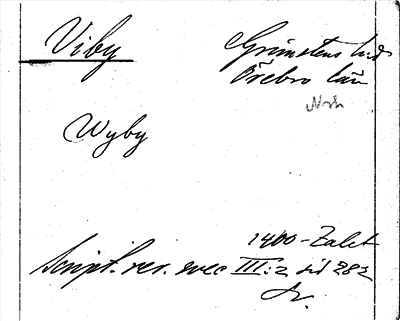 Viby
Grimstens hd
Örebro län
Wyby
1400-Talet
Script. rer. svec III:2 sid 282